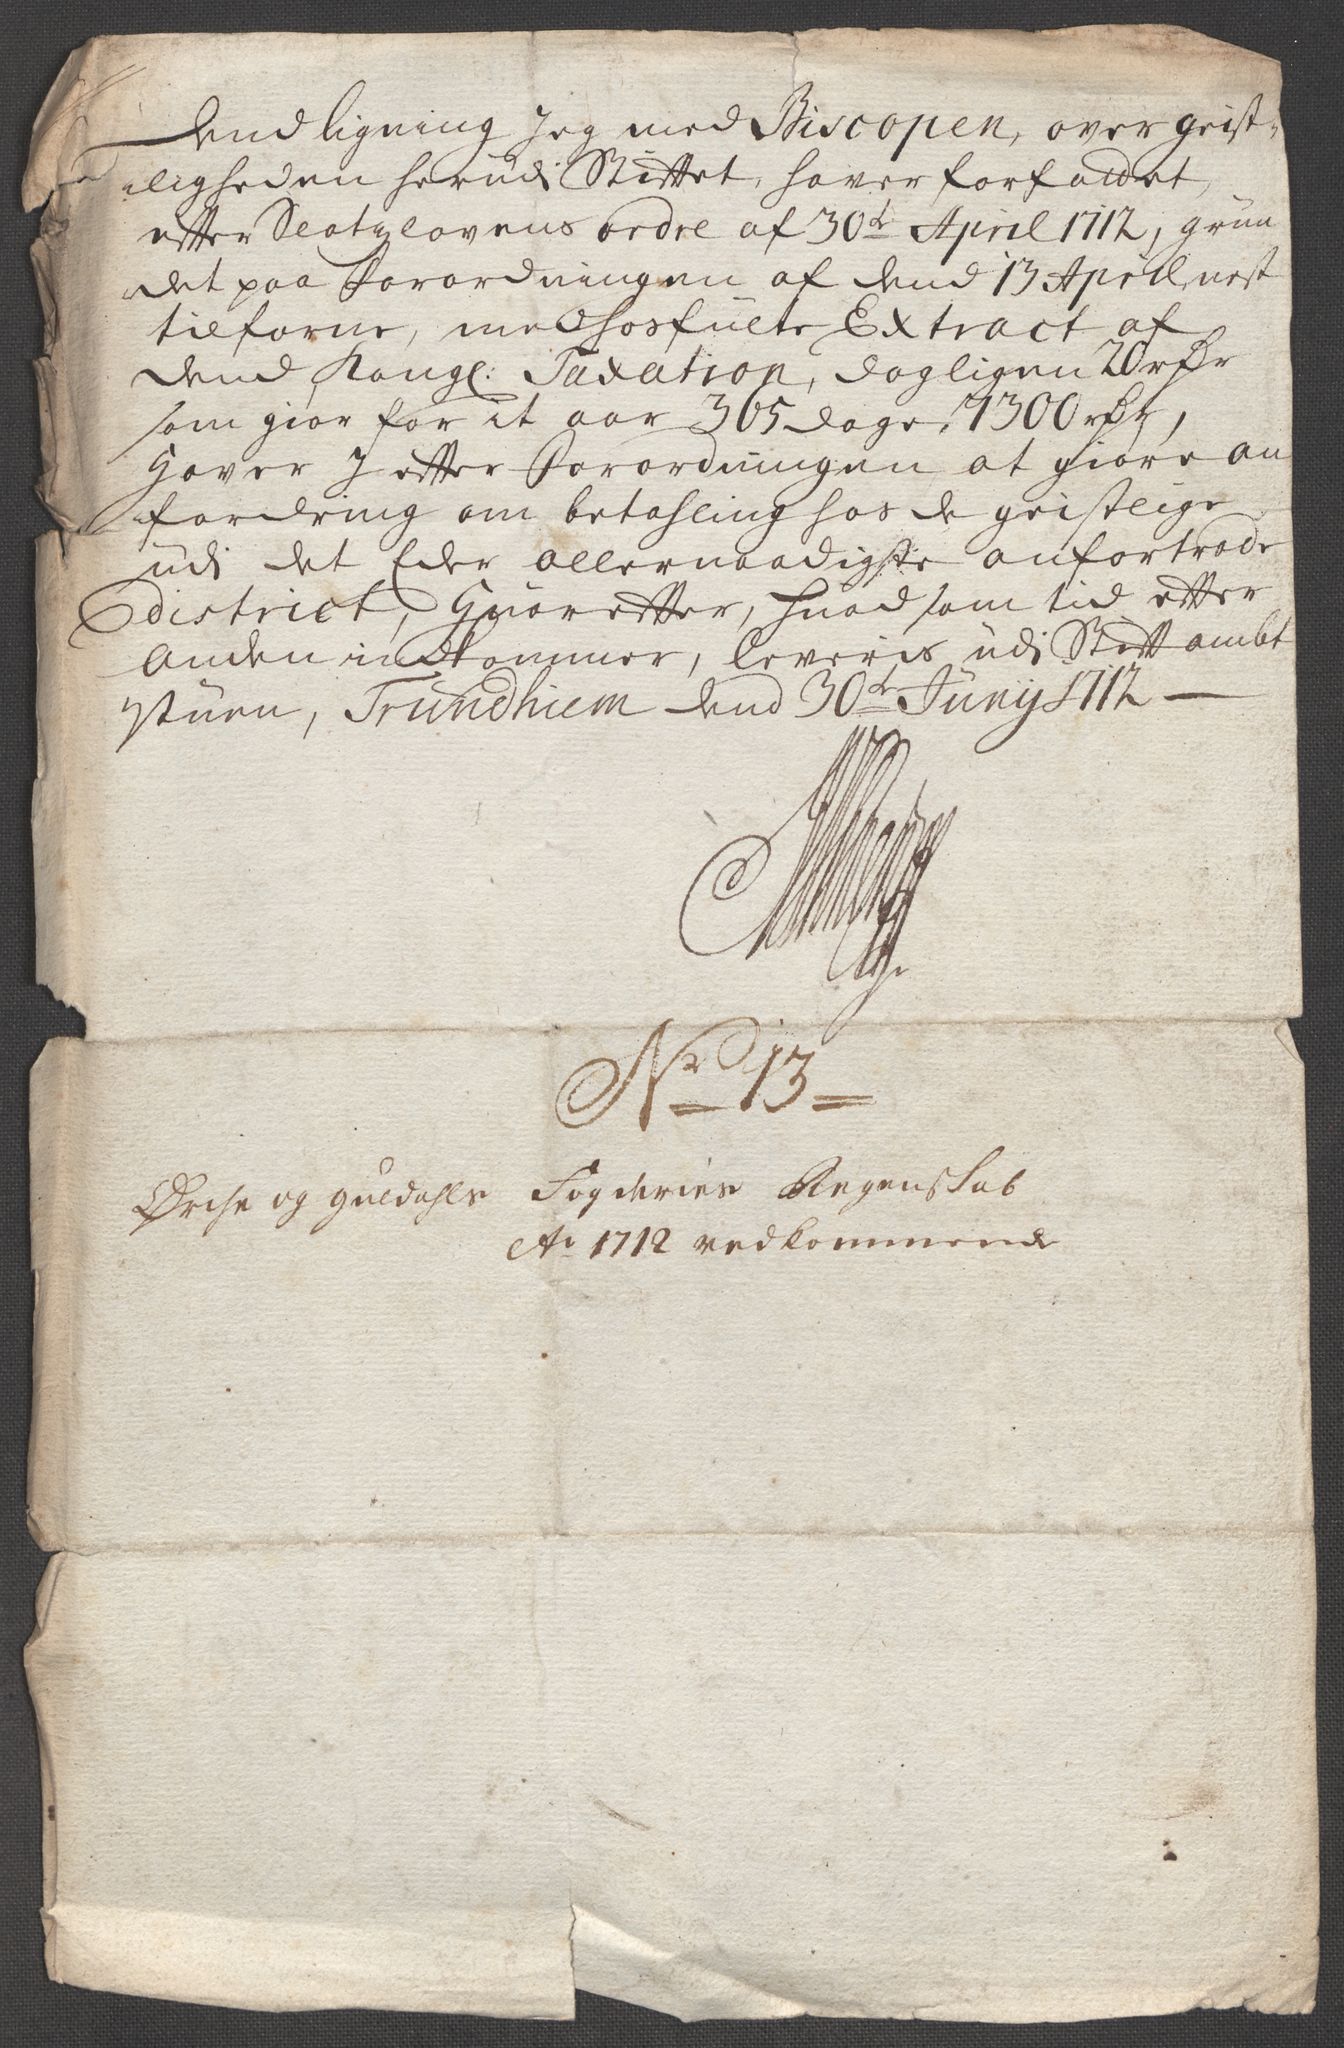 Dend ligning Jeg med Biscopen, over geist-
ligheden herudi Stiftet, hafver forfattet,
efter Slotzlovens ordre af 30de April 1712, grun
det paa Forordningen af dend 13 April nest
tilforne, medhosfülte Extract af
dend Kongl: Taxation, dagligen 20 rdr
som giør for it aar 365 dage, 7300 rdr,
Hafver I efter Forordningen at giøre an
fordring om betahling hos de geistlige
udi det Eder allernaadigste anfortrode
District, Huorefter, huad som tid efter
anden indkommer, leveris udi Stift ambt
stuen, Trundhiem dend 30de Junij 1712
No 13
Orche og Guldahls Fogderies Regenskab
Ao 1712 vedkommende